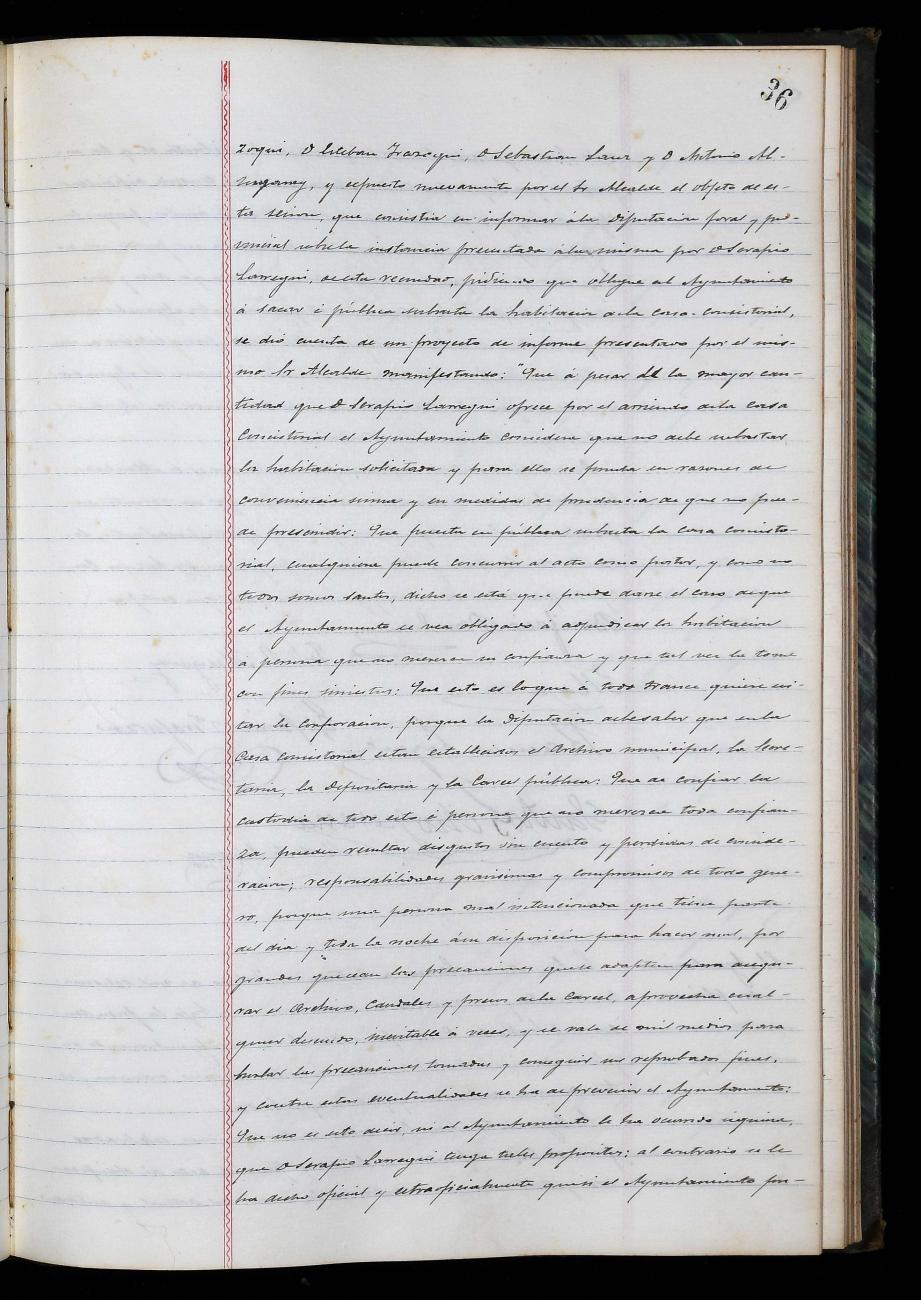 36
zoqui, D Esteban Irazoqui, D Sebastian Sanz y D Antonio Al-
y espuesto nuevamente por el Sr Alcalde el objeto de es-
ta sesion, que consistia en informar á la Diputacion foral y pro-
vincial sobre la instancia presentada á la misma por D Serapio
Larregui, de esta vecindad, pidiendo que obligue al Ayuntamiento
á sacar á pública subasta la habitacion de la casa consistorial,
se dió cuenta de un proyecto de informe presentado por el mis-
mo Sr Alcalde manifestando: "Que á pesar de la mayor can-
tidad que D Serapio Larregui ofrece por el arriendo de la casa
Consistorial el Ayuntamiento considera que no debe subastar
la habitacion solicitada y para ello se funda en razones de
conveniencia suma y en medidas de prudencia de que no pue-
de prescindir: Que puesta en pública subasta la casa consisto-
rial, cualquiera puede concurrir al acto como postor, y como no
todos somos santos, dicho se está que puede darse el caso de que
el Ayuntamiento se vea obligado á adjudicar la habitacion
á persona que no merezca su confianza y que tal vez la tome
con fines siniestros: Que esto es lo que á todo trance quiere evi-
tar la Corporacion, porque la Diputacion debe saber que en la
Casa consistorial estan establecidos el Archivo municipal, la Secre-
taria, la Depositaria y la Carcel pública: Que de confiar la
custodia de todo esto á persona que no merezca toda confian-
za, pueden resultar disgustos sin cuento y perdidas de conside-
racion; responsabilidades gravisimas y compromisos de todo gene-
ro, porque una persona mal intencionada que tiene parte
del dia y toda la noche á su disposicion para hacer mal, por
grandes que sean las precauciones que se adopten para asegu-
rar el Archivo, Caudales y presos de la Carcel, aprovecha cual-
quier descuido, inevitable á veces, y se vale de mil medios para
burlar las precauciones tomadas y conseguir sus reprobados fines,
y contra estas eventualidades se ha de prevenir el Ayuntamiento:
Que no es esto decir, ni al Ayuntamiento le ha ocurrido siquiera,
que D Serapio Larregui tenga tales propositos; al contrario se le
ha dicho oficial y estraoficialmente que si el Ayuntamiento pu-